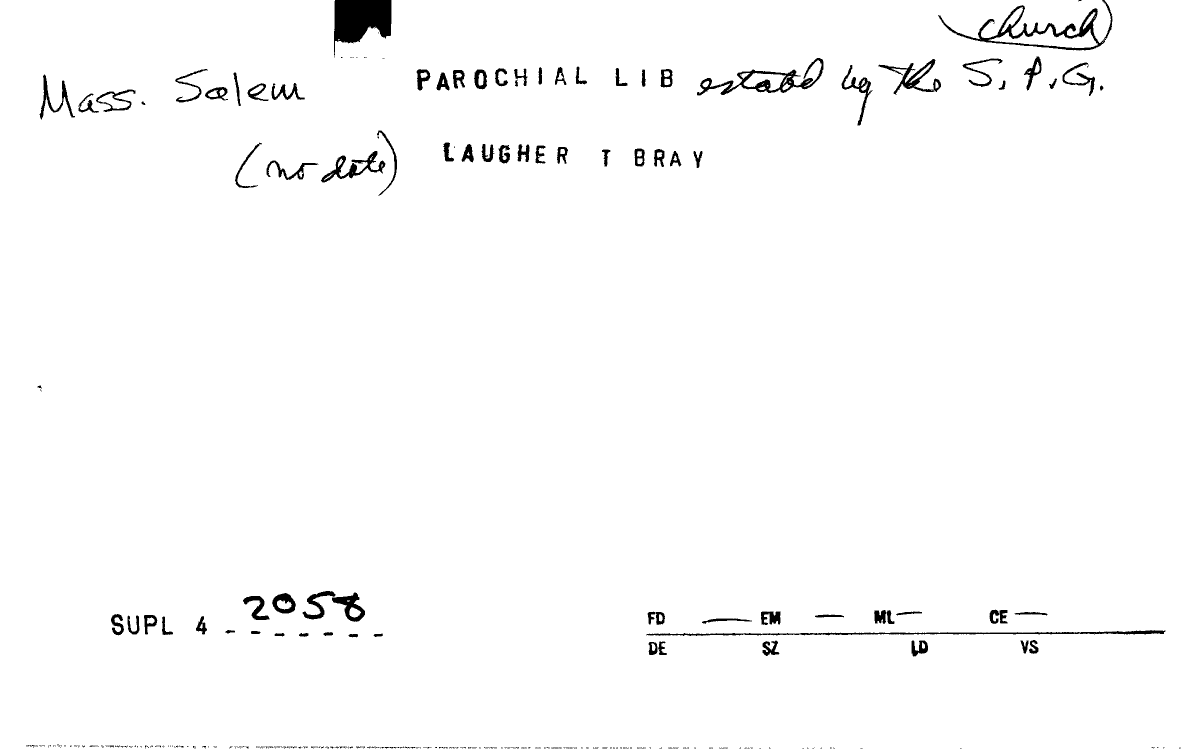 church
Mass. Salem PAROCHIAL LIB estabd by the S.P.G.
(no date) LAUGHER T BRAY
SUPL 4 2058
FD — EM — ML — CE —
DE SZ LD VS